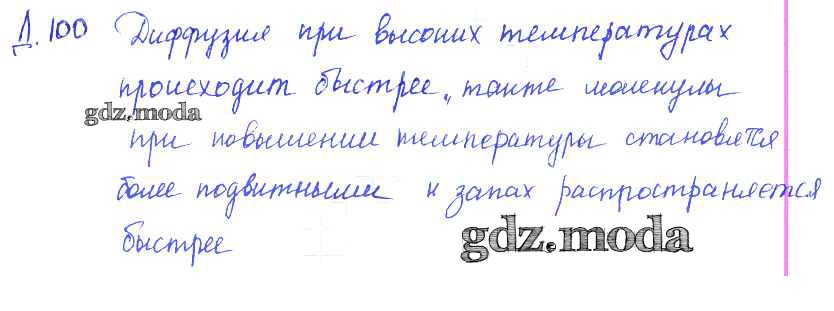 Д.100 Диффузия при высоких температурах
происходит быстрее, также молекулы
gdz.moda
при повышении температуры становятся
более подвижными и запах распространяется
быстрее
gdz.moda